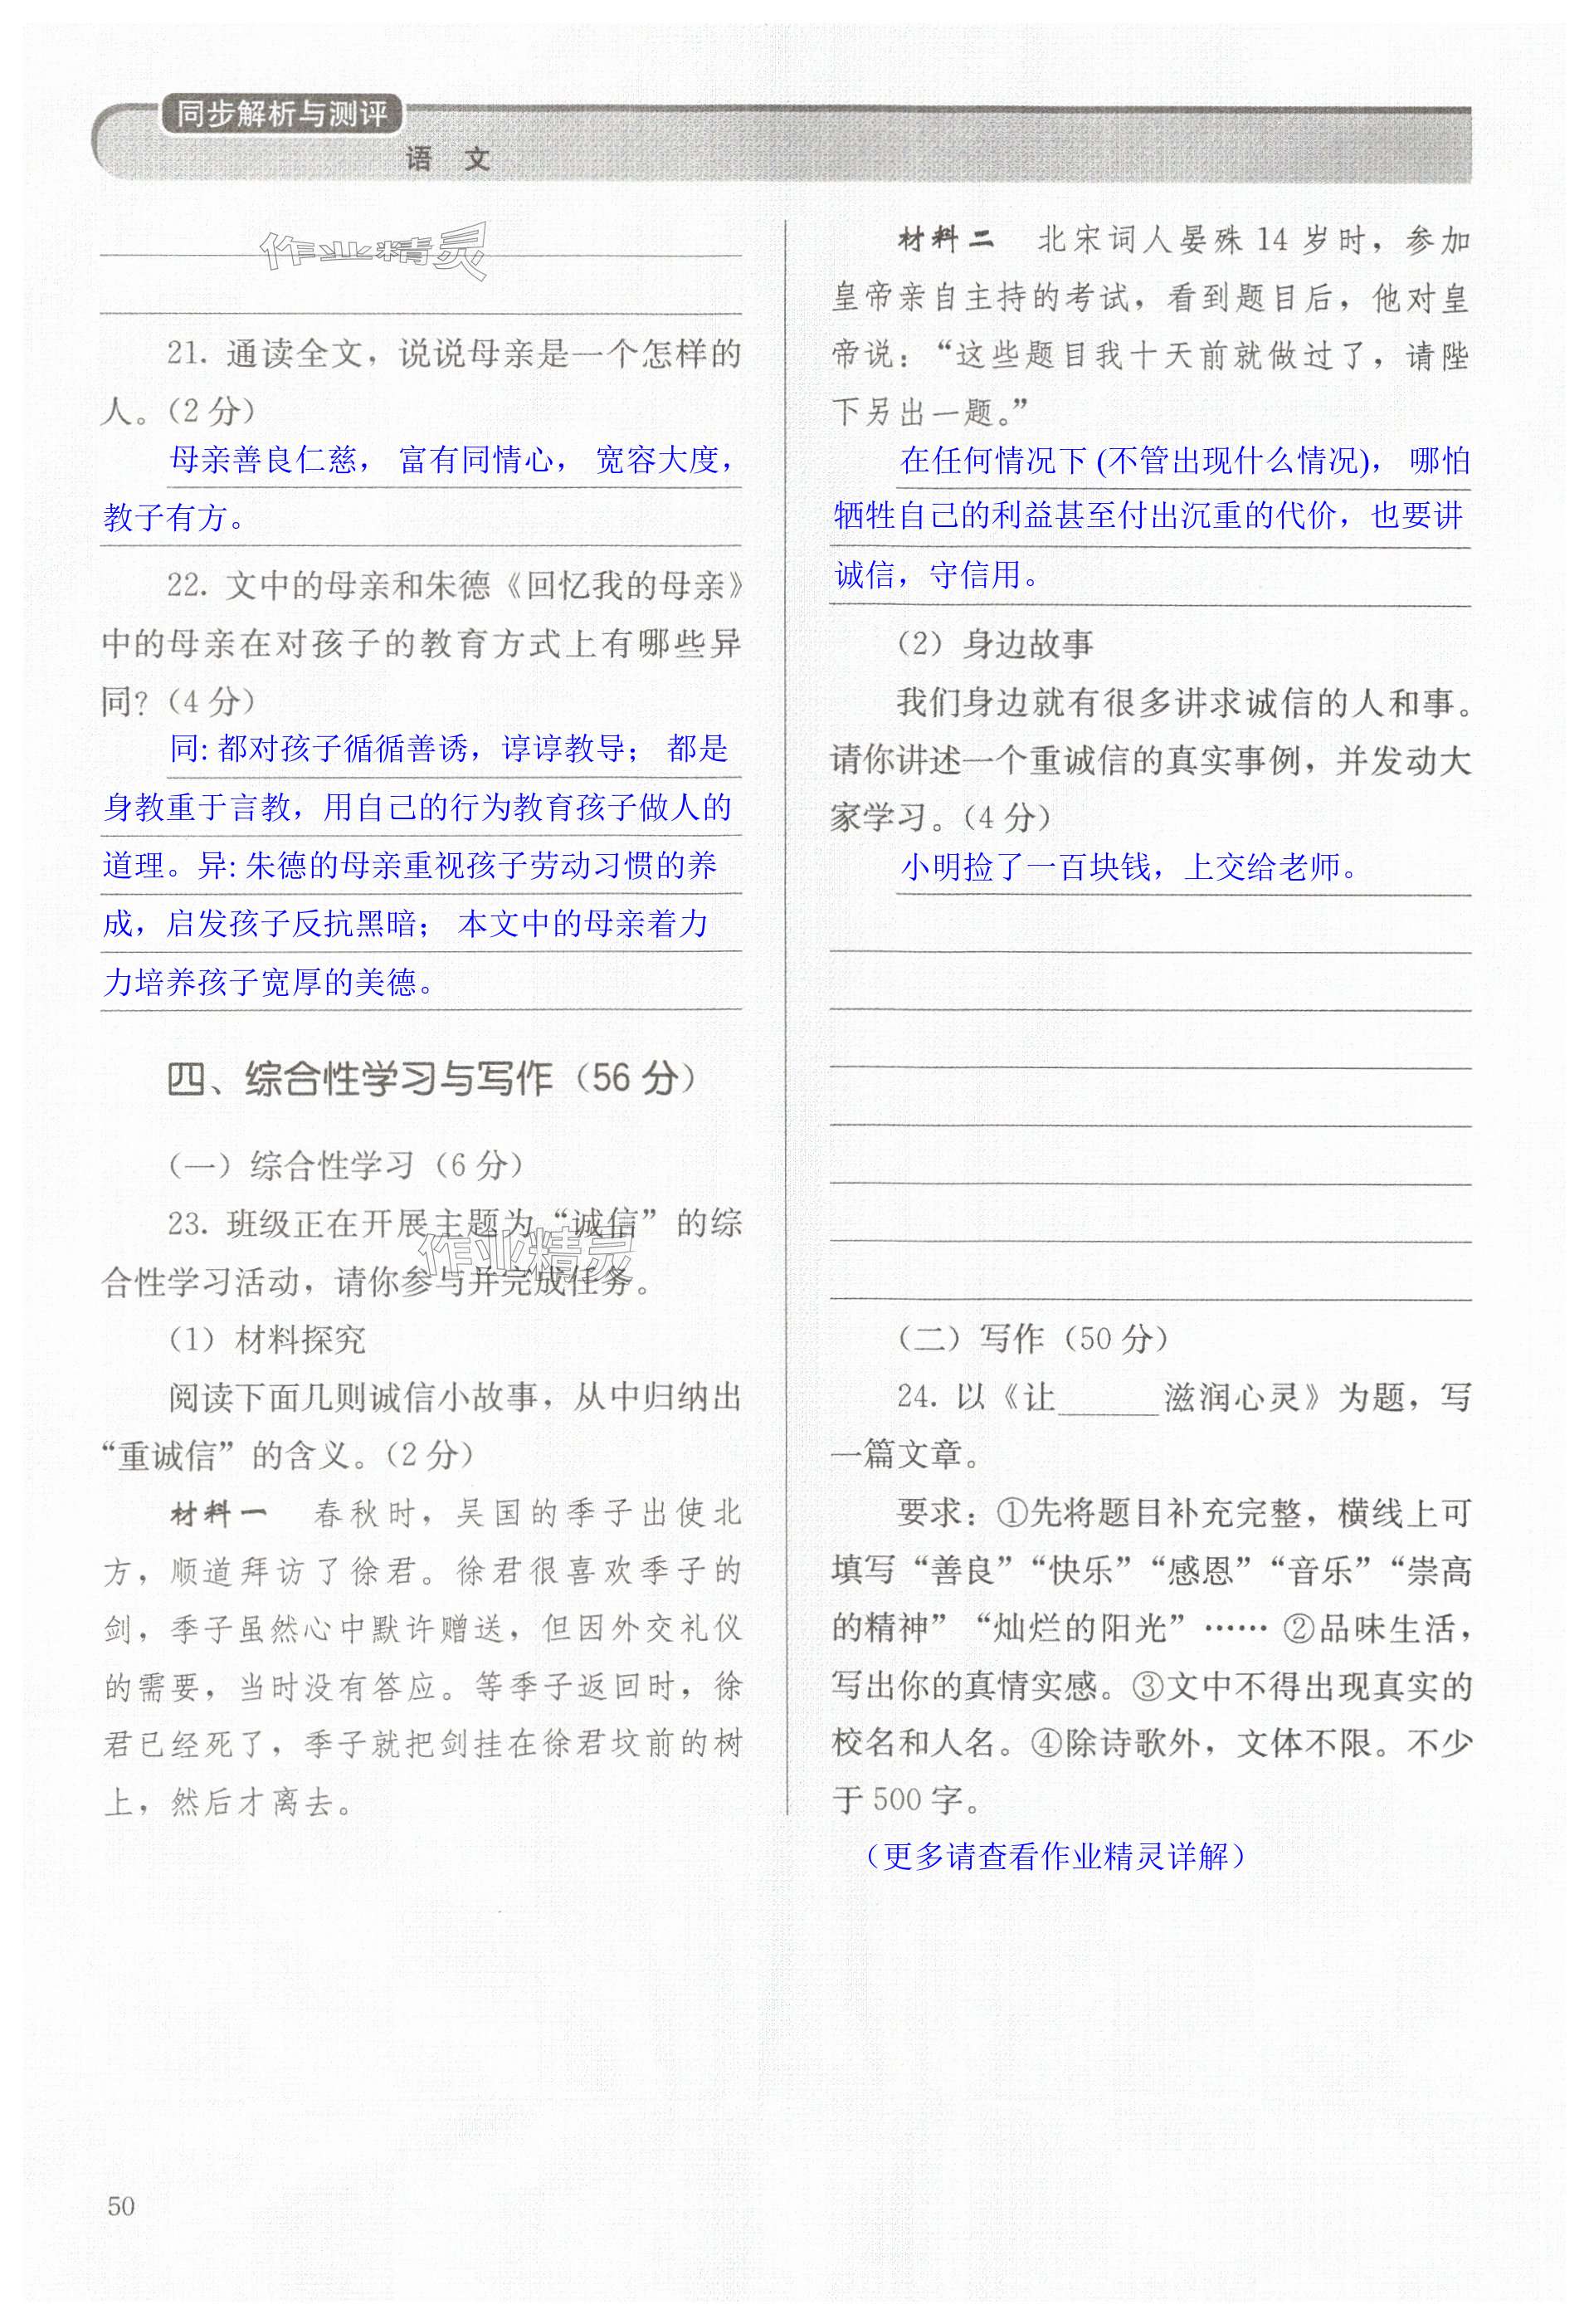 同步解析与测评
语 文
作业精灵
21. 通读全文，说说母亲是一个怎样的
人。（2 分）
母亲善良仁慈， 富有同情心， 宽容大度，
教子有方。
22. 文中的母亲和朱德《回忆我的母亲》
中的母亲在对孩子的教育方式上有哪些异
同？（4 分）
同: 都对孩子循循善诱，谆谆教导； 都是
身教重于言教，用自己的行为教育孩子做人的
道理。异: 朱德的母亲重视孩子劳动习惯的养
成，启发孩子反抗黑暗； 本文中的母亲着力
力培养孩子宽厚的美德。
四、综合性学习与写作（56 分）
（一）综合性学习（6 分）
23. 班级正在开展主题为“诚信”的综
作业精灵
合性学习活动，请你参与并完成任务。
（1）材料探究
阅读下面几则诚信小故事，从中归纳出
“重诚信”的含义。（2 分）
材料一 春秋时，吴国的季子出使北
方，顺道拜访了徐君。徐君很喜欢季子的
剑，季子虽然心中默许赠送，但因外交礼仪
的需要，当时没有答应。等季子返回时，徐
君已经死了，季子就把剑挂在徐君坟前的树
上，然后才离去。
材料二 北宋词人晏殊 14 岁时，参加
皇帝亲自主持的考试，看到题目后，他对皇
帝说：“这些题目我十天前就做过了，请陛
下另出一题。”
在任何情况下 (不管出现什么情况)， 哪怕
牺牲自己的利益甚至付出沉重的代价，也要讲
诚信，守信用。
（2）身边故事
我们身边就有很多讲求诚信的人和事。
请你讲述一个重诚信的真实事例，并发动大
家学习。（4 分）
小明捡了一百块钱，上交给老师。
（二）写作（50 分）
24. 以《让______滋润心灵》为题，写
一篇文章。
要求：①先将题目补充完整，横线上可
填写“善良”“快乐”“感恩”“音乐”“崇高
的精神”“灿烂的阳光”……②品味生活，
写出你的真情实感。③文中不得出现真实的
校名和人名。④除诗歌外，文体不限。不少
于 500 字。
（更多请查看作业精灵详解）
50